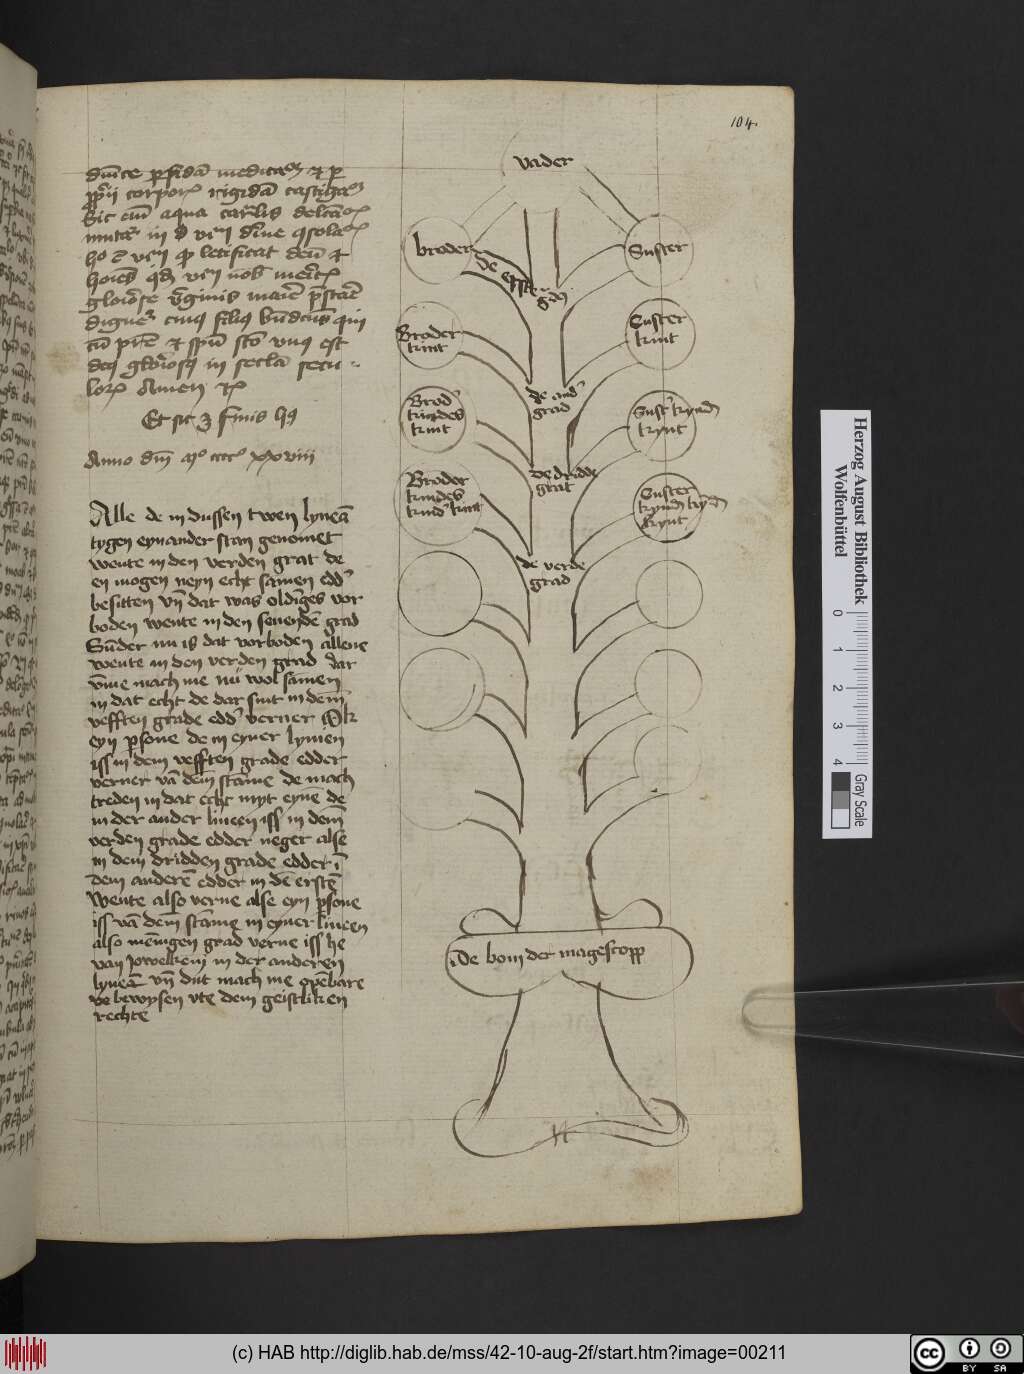 104
sic cum aqua
in
et
glorose virginis marie
digne cuius filius
cum patre et spiritu sancto vnus est
deus gloriosus in secula secu
lorum Amen
Et sic est finis
Anno dm mº ccccº xxviii
Alle de in dussen twen lyneā
tygen eynander stan genomet
wente in den verden grat de
en mogen neyn echt samen edd'
besitten vn dat was oldinges vor
boden wente in den seuendē grad
Sūder nu is dat vorboden allene
wente in den verden grad dar
vmme mach me nu wol samen
in dat echt de dar sint in dem
vefften grade edd' verner Ok
eyn psone de in eyner lynien
iss in dem vefften grade edder
verner vā dem stāme de mach
treden in dat echt myt eynē de
in der ander lineen iss in dem
verden grade edder neger alse
in dem dridden grade edder ī
dem anderē edder in dē erstē
Wente also verne alse eyn psone
iss vā dem stāme in eyner lineen
also mēnigen grad verne iss he
van in der anderen
lyneā vn dut mach me opēbare
bewysen vte dem geistliken
rechte
vader
broder
Suster
de erste grad
Broder
kint
Suster
kint
de and'
grad
Brod'
kindes
kint
Sust' kynd
kynt
De dridde
grat
Broder
kindes
kind' kint
Suster
kynd kyd
kynt
de verde
grad
De bom der magescopp
Herzog August Bibliothek
Wolfenbüttel
0 1 2 3 4
Gray Scale
(c) HAB http://diglib.hab.de/mss/42-10-aug-2f/start.htm?image=00211
cc BY SA